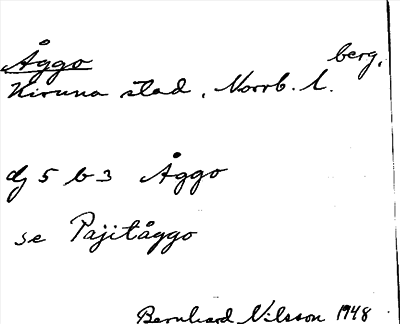 Åggo berg,
Kiruna stad, Norrb. l.
dj 5 b 3 Åggo
se Pajitåggo
Bernhard Nilsson 1948